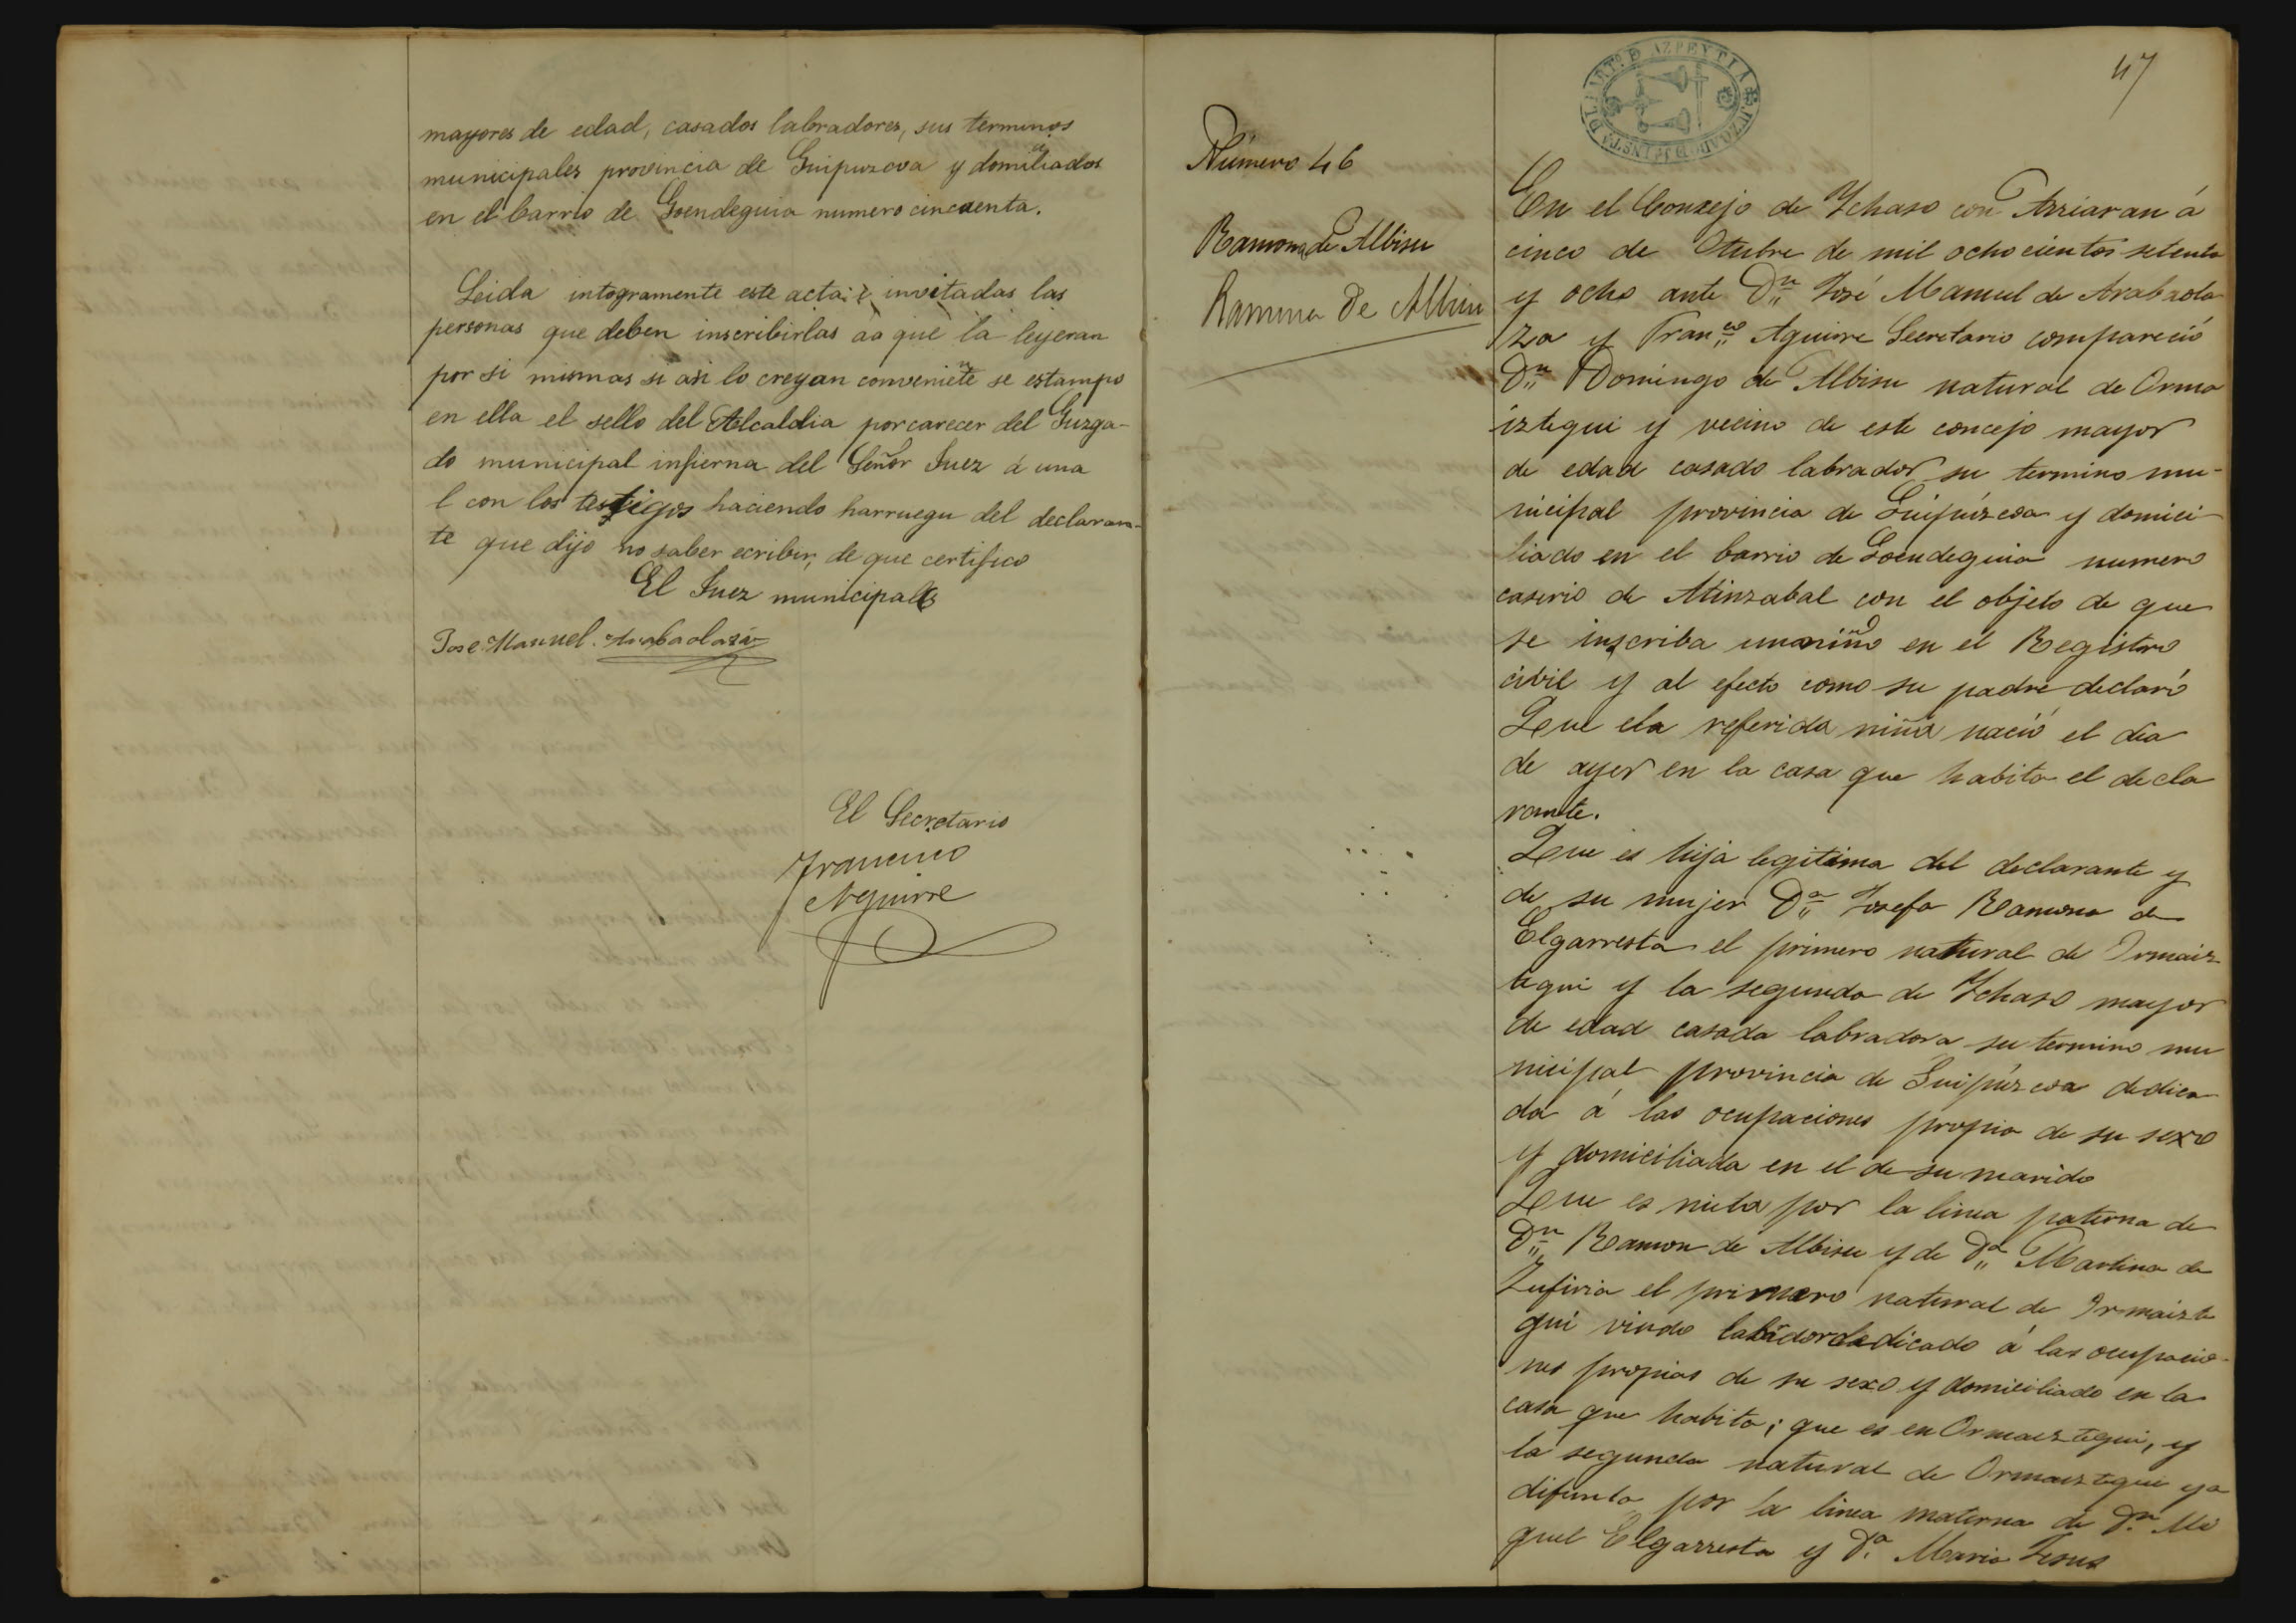 mayores de edad, casados labradores, sus terminos
municipales provincia de Guipuzcoa y domiciliados
en el barrio de Goendeguia numero cincuenta.
Leida integramente este acta é invitadas las
personas que deben inscribirlas aa que la leyeran
por si mismas si asi lo creyan conveniente se estampo
en ella el sello del Alcaldia por carecer del Guzga-
do municipal infierna del Señor Juez á una
l con los testigos haciendo harruegu del declaran-
te que dijo no saber ecribir, de que certifico
El Juez municipal
Jose Manuel Arabaolaza
El Secretario
Francisco
Aguirre
47
JUZGADO DE 1ª INSTª DEL PARTº DE AZPEYTIA
Número 46
Ramona de Albisu
Ramona de Albisu
En el Conzejo de Ychaso con Arriaran á
cinco de Otubre de mil ochocientos setenta
y ocho ante Dn José Manuel de Arabaola
za y Franco Aguirre Secretario compareció
Dn Domingo de Albisu natural de Orma
iztegui y vecino de este concejo mayor
de edad casado labrador su termino mu-
nicipal provincia de Guipúzcoa y domici-
liado en el barrio de Goendeguia numero
caserio de Minzabal con el objeto de que
se inscriba una niña en el Registro
civil y al efecto como su padre declaró
Que ela referida niña nació el dia
de ayer en la casa que habita el decla
rante.
Que es hija legitima del declarante y
de su mujer Da Josefa Ramona de
Elgarresta el primero natural de Ormaiz
tegui y la segunda de Ychaso mayor
de edad casada labradora su termino mu
nicipal provincia de Guipúzcoa dedica
da á las ocupaciones propia de su sexo
y domiciliada en el de su marido
Que es nieta por la linea paterna de
Dn Ramon de Albisu y de Da Martina de
Zufiria el primero natural de Ormaizte
gui viudo labrador dedicado á las ocupacio-
nes propias de su sexo y domiciliado en la
casa que habita; que es en Ormaiztegui, y
la segunda natural de Ormaiztegui ya
difunta por la linea materna de Dn Mi
guel Elgarresta y Da Maria Jesus